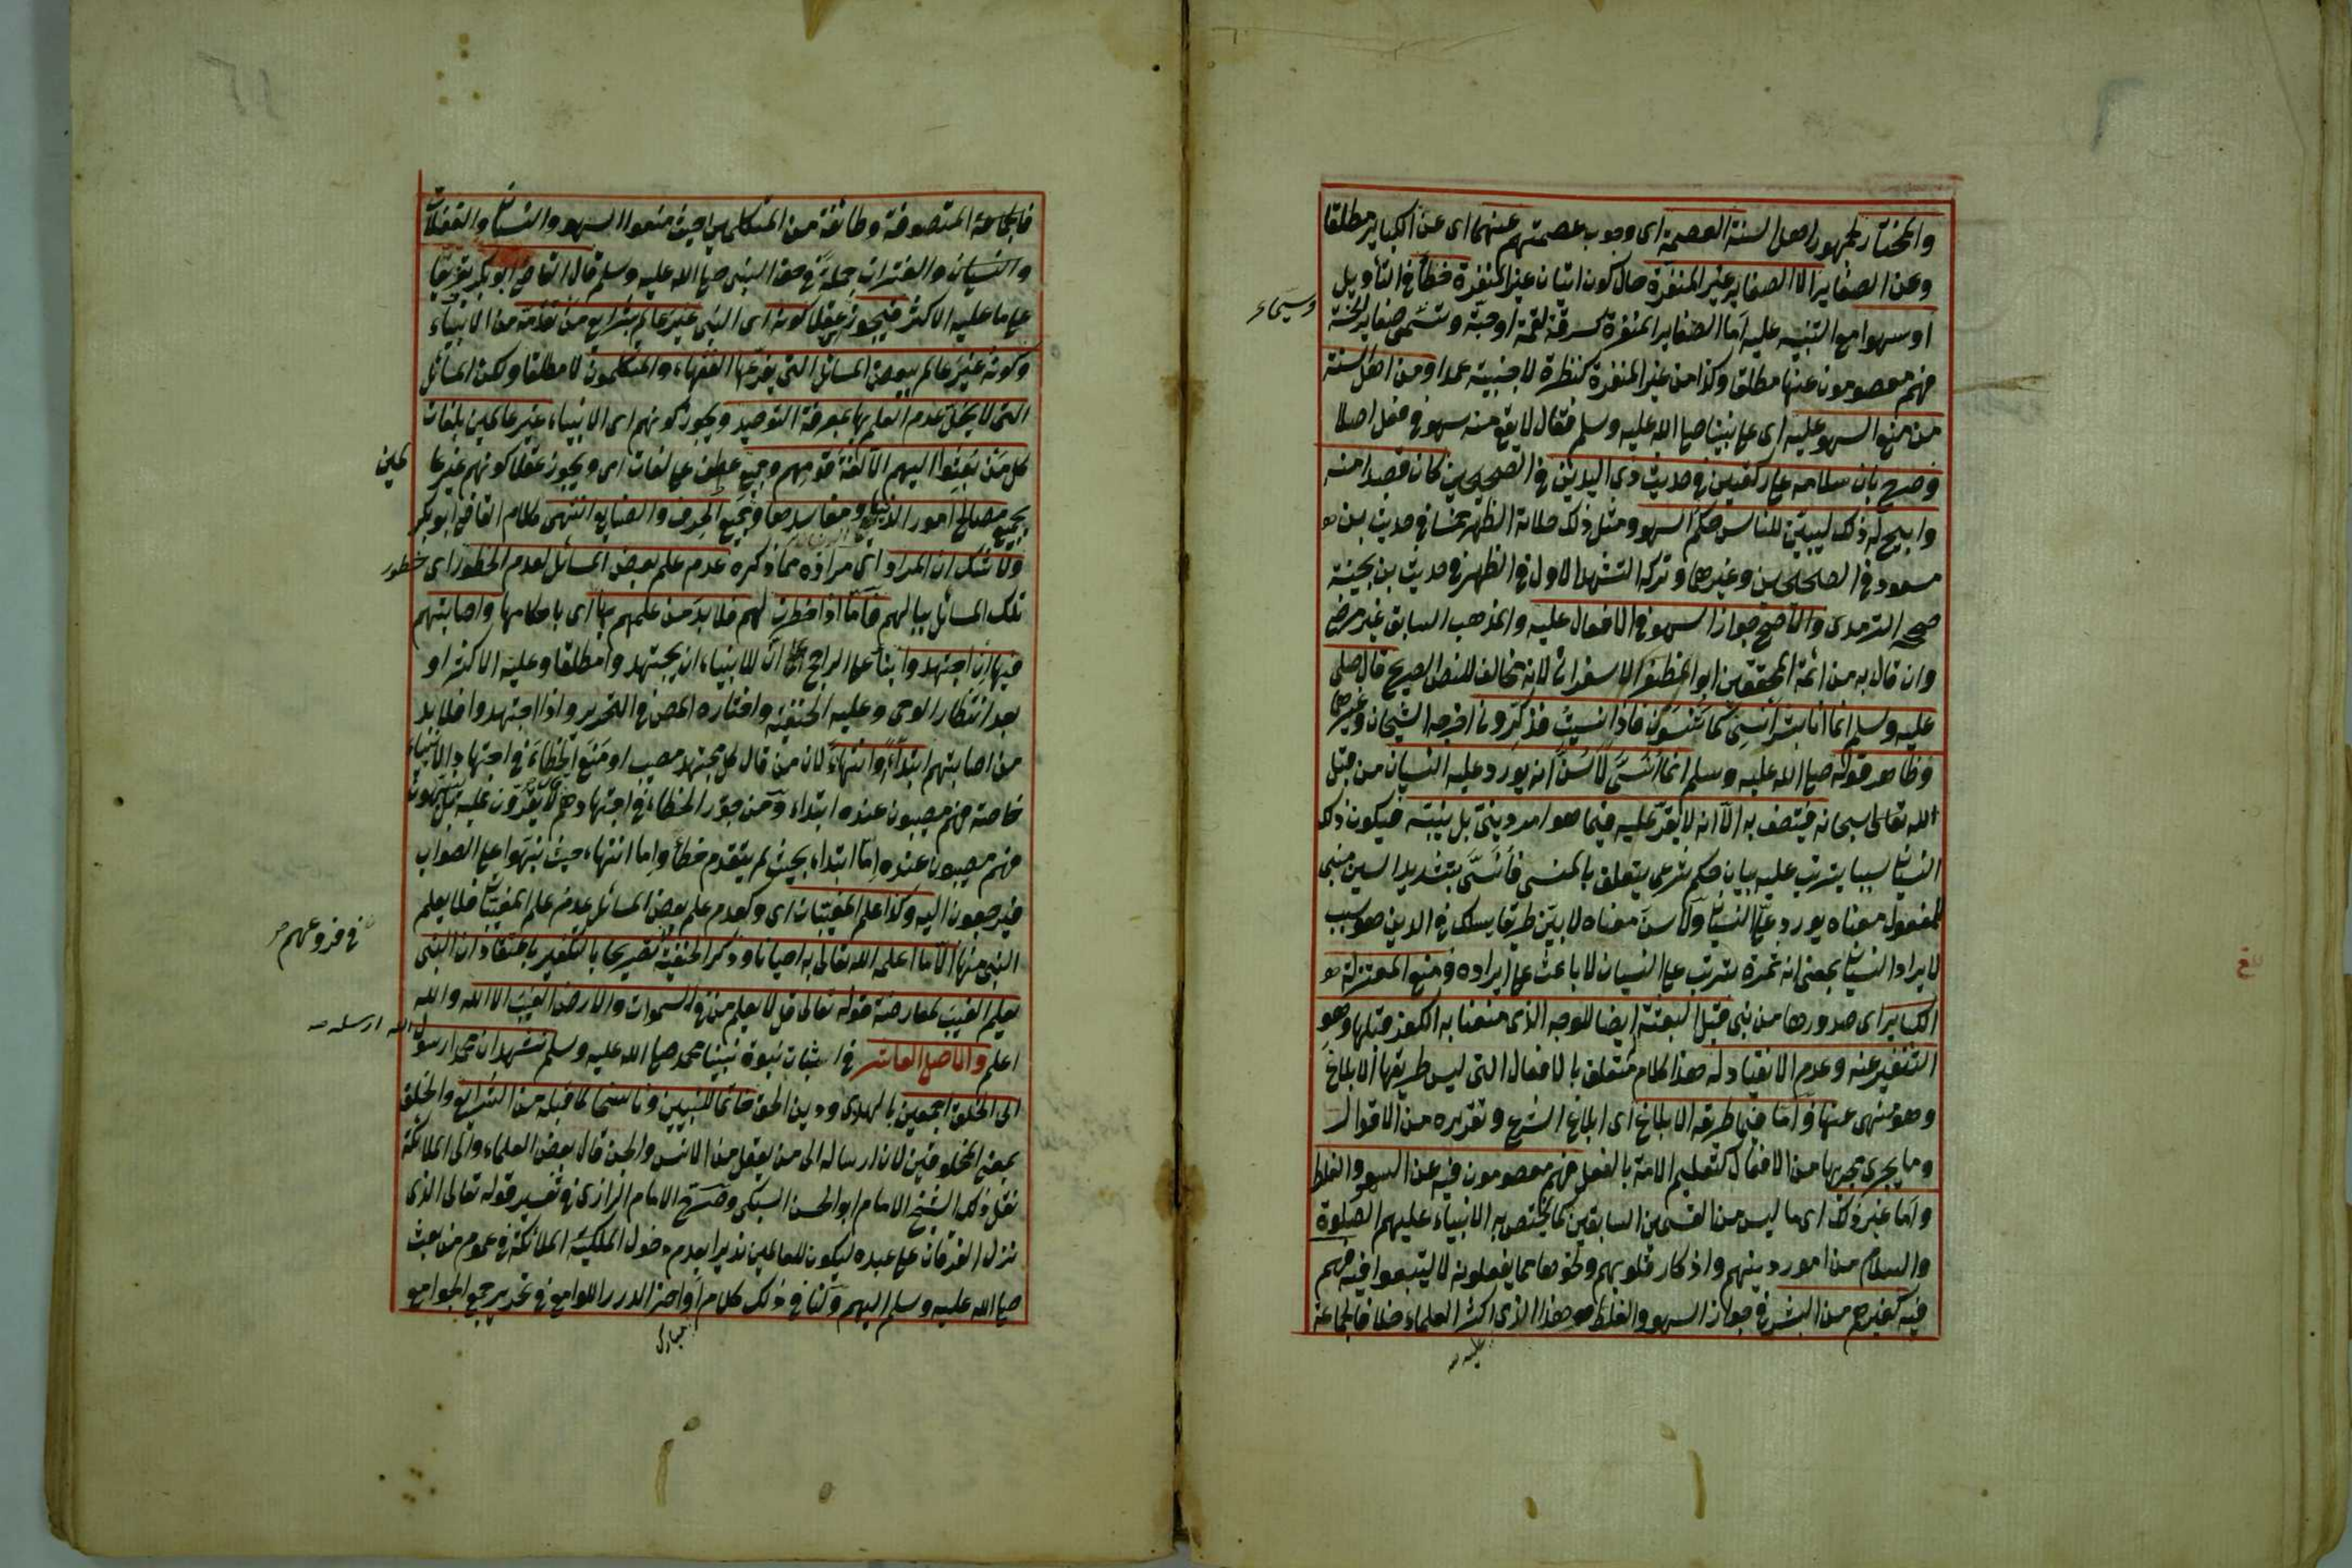 والمختار لجمهور اهل السنة العصمة اى وجوب عصمتهم عنهما اى عن الكباير مطلقا
وعن الصغاير الا الصغاير غير المنفرة حال كون اتيان غير المنفرة خطأ فى التاويل
او سهوا مع التنبيه عليه اما الصغاير المنفرة كسرقة لقمة او حبة وتسمى صغاير الخسة
فهم معصومون عنها مطلقا وكذا من غير المنفرة كنظرة لاجنبية عمدا ومن اهل السنة
من منع السهو عليه اى على نبينا صلى الله عليه وسلم فقال لا يقع منه سهو فى فعل اصلا
وصرح بان سلامه على ركعتين فى حديث ذى اليدين فى الصحيحين كان قصدا منه
وابيح له ذلك ليبين للناس حكم السهو ومثل ذلك صلاته الظهر خمسا فى حديث بن
مسعود فى الصحيحين وغيرهما وتركه التشهد الاول فى الظهر فى حديث بن بحينة
صححه الترمدى والاصح جواز السهو فى الافعال عليه والمذهب السابق غير مرض
وان قال به من ائمة المحققين ابو المظفر الاسفراينى لانه مخالف للنص الصريح قال صلى
عليه وسلم انما انا بشر انسى كما تنسون فاذا نسيت فذكرونى اخرجه الشيخان وغيرهما
وظاهر قوله صلى الله عليه وسلم انما انسى لاسن انه يورد عليه النسيان من قبل
الله تعالى سبحانه فيتصف به الا انه لا يقر عليه فيما هو امر دينى بل ينبه فيكون ذلك
النسيان سببا يترتب عليه بيان حكم شرعى يتعلق بالمنسى فانسى بتشديد السين مبنى
للمفعول معناه يورد على النسيان ولاسن معناه لابين طريقا يسلك فى الدين هو سبب
لايراد النسيان بمعنى انه ثمرة تترتب على النسيان لا باعث على ايراده ومنع المعتزلة
الكباير اى صدورها من نبى قبل البعثة ايضا للوجه الذى منعنا به الكفر قبلها وهو
التنفير عنه وعدم الانقياد له هذا كلام متعلق بالافعال التى ليس طريقها الابلاغ
وهو منهى عنها واما فيما طريقه الابلاغ اى ابلاغ الشرع وتقريره من الاقوال
وما يجرى مجريها من الافعال كتعليم الامة بالفعل فهم معصومون فيه عن السهو والغلط
واما غير ذلك اى ما ليس من القسمين السابقين مما يختص به الانبياء عليهم الصلوة
والسلام من امور دينهم واذكار قلوبهم ونحوها مما يفعلونه لا ليتبعوا فيه فهم
فيه كغيرهم من البشر فى جواز السهو والغلط هو هذا الذى اكثر العلماء خلافا لجماعة
عليه
فالجماعة المتصوفة وطائفة من المتكلمين حيث منعوا السهو والنسيان والغفلات
والنسيان والفترات جملة فى حق النبى صلى الله عليه وسلم قال القاضى ابو بكر تفريعا
على ما عليه الاكثر فيجوز عقلا كونه اى النبى غير عالم بشرايع من تقدمه من الانبياء
وكونه غير عالم ببعض المسائل التى يفرعها الفقهاء والمتكلمون لا مطلقا ولكن المسائل
التى لا يخل عدم العلم بها بمعرفة التوحيد ويجوز كونهم اى الانبياء غير عالمين بلغات
كل من بعثوا اليهم الا لغة قومهم وجميع عطف على لغات اى ويجوز عقلا كونهم غير عا
لمين
بجميع مصالح امور الدنيا ومفاسدها وجميع الحرف والصنايع انتهى كلام القاضى ابو بكر
ولا شك ان المراد اى مراده مما ذكره عدم علم بعض المسائل لعدم الخطور اى خطور
تلك المسائل ببالهم فاما اذا خطرت لهم فلابد من علمهم بها اى باحكامها واصابتهم
فيها ان اجتهدوا بناء على الراجح ان للانبياء ان يجتهدوا مطلقا وعليه الاكثر او
بعد انتظار الوحى وعليه الحنفية واختاره المص فى التحرير واذا اجتهدوا فلابد
من اصابتهم ابتداءً وانتهاءً لان من قال كل مجتهد مصيب او منع الخطاء فى اجتهاد الانبياء
خاصة فهم مصيبون عنده ابتداء ومن جوز الخطاء فى اجتهادهم لا يقرون عليه بل ينبهون
فهم مصيبون عنده اما ابتداء بحيث لم يتقدم خطأ واما انتهاء حيث نبهوا على الصواب
فيرجعون اليه وكذا علم المغيبات اى وكعدم علم بعض المسائل عدم علم المغيبات فلا يعلم
النبى منها الا ما اعلمه الله تعالى به احيانا وذكر الحنفية تصريحا بالتكفير باعتقاد ان النبى
فى فروعهم
يعلم الغيب لمعارضة قوله تعالى قل لا يعلم من فى السموات والارض الغيب الا الله والله
اعلم والاصل العاشر فى اثبات نبوة نبينا محمد صلى الله عليه وسلم نشهد ان محمدا رسول الله ارسله
الى الخلق اجمعين بالهدى ودين الحق خاتما للنبيين وناسخا لما قبله من الشرايع والخلق
بمعنى المخلوقين لان ارساله الى من يعقل من الانس والجن قال بعض العلماء والى الملائكة
نقل ذلك الشيخ الامام ابو الحسن السبكى وصرح الامام الرازى فى تفسير قوله تعالى الذى
نزل الفرقان على عبده ليكون للعالمين نذيرا بعدم دخول الملائكة فى عموم من بعث
صلى الله عليه وسلم اليهم ولنا فى ذلك كلام اواخر الدرر اللوامع فى تحرير جمع الجوامع